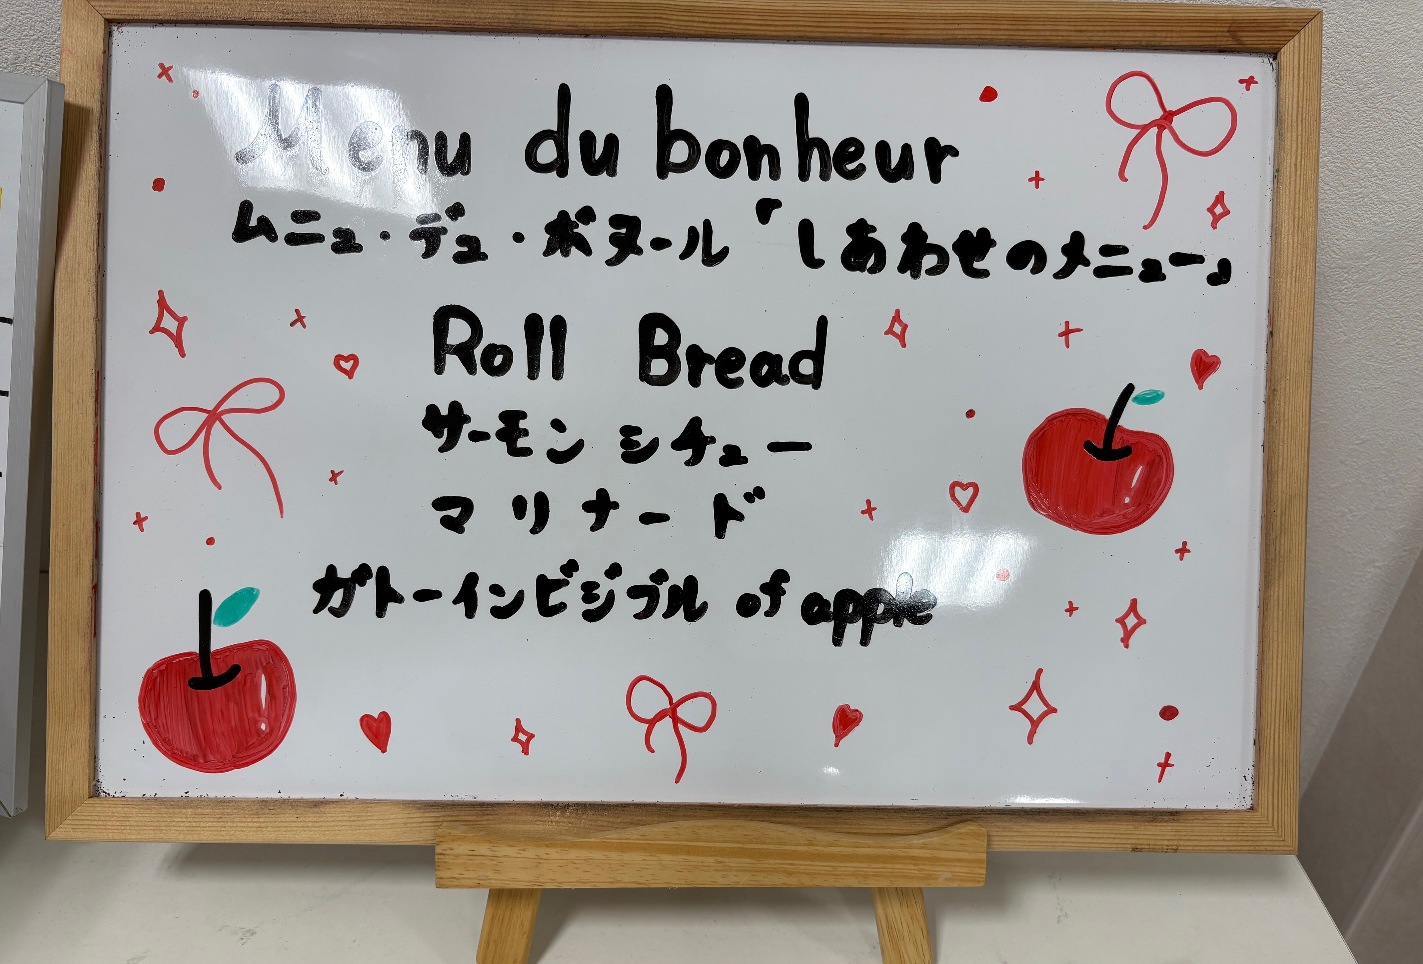 Menu du bonheur
ムニュ・デュ・ボヌール「しあわせのメニュー」
Roll Bread
サーモンシチュー
マリナード
ガトーインビジブル of apple